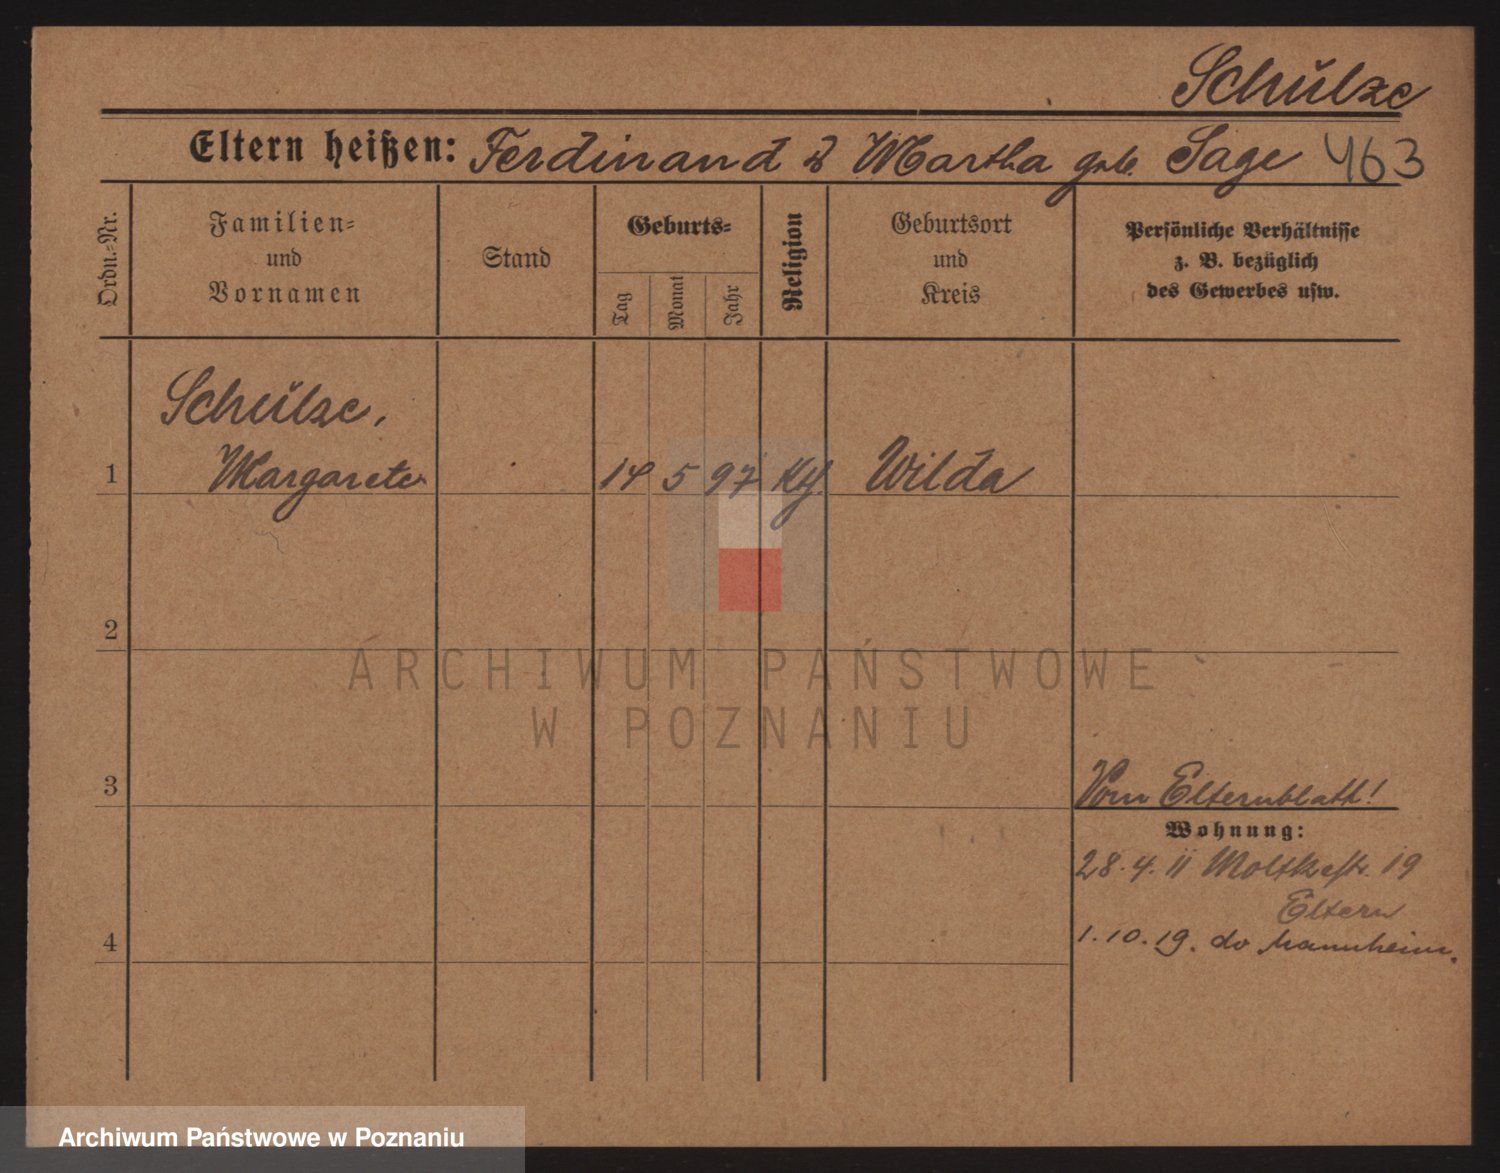 Schulze
Eltern heißen: Ferdinand & Martha geb. Sage 463
Ordn.=Nr.
Familien=
und
Vornamen
Stand
Geburts=
Tag
Monat
Jahr
Religion
Geburtsort
und
Kreis
Persönliche Verhältnisse
z. B. bezüglich
des Gewerbes usw.
Schulze,
1 Margarete 14 5 97 Wilda
2
ARCHIWUM PAŃSTWOWE
W POZNANIU
3 Vom Elternblatt!
Wohnung:
28.4.11 Moltkestr. 19
Eltern
4 1.10.19. do Mannheim.
Archiwum Państwowe w Poznaniu